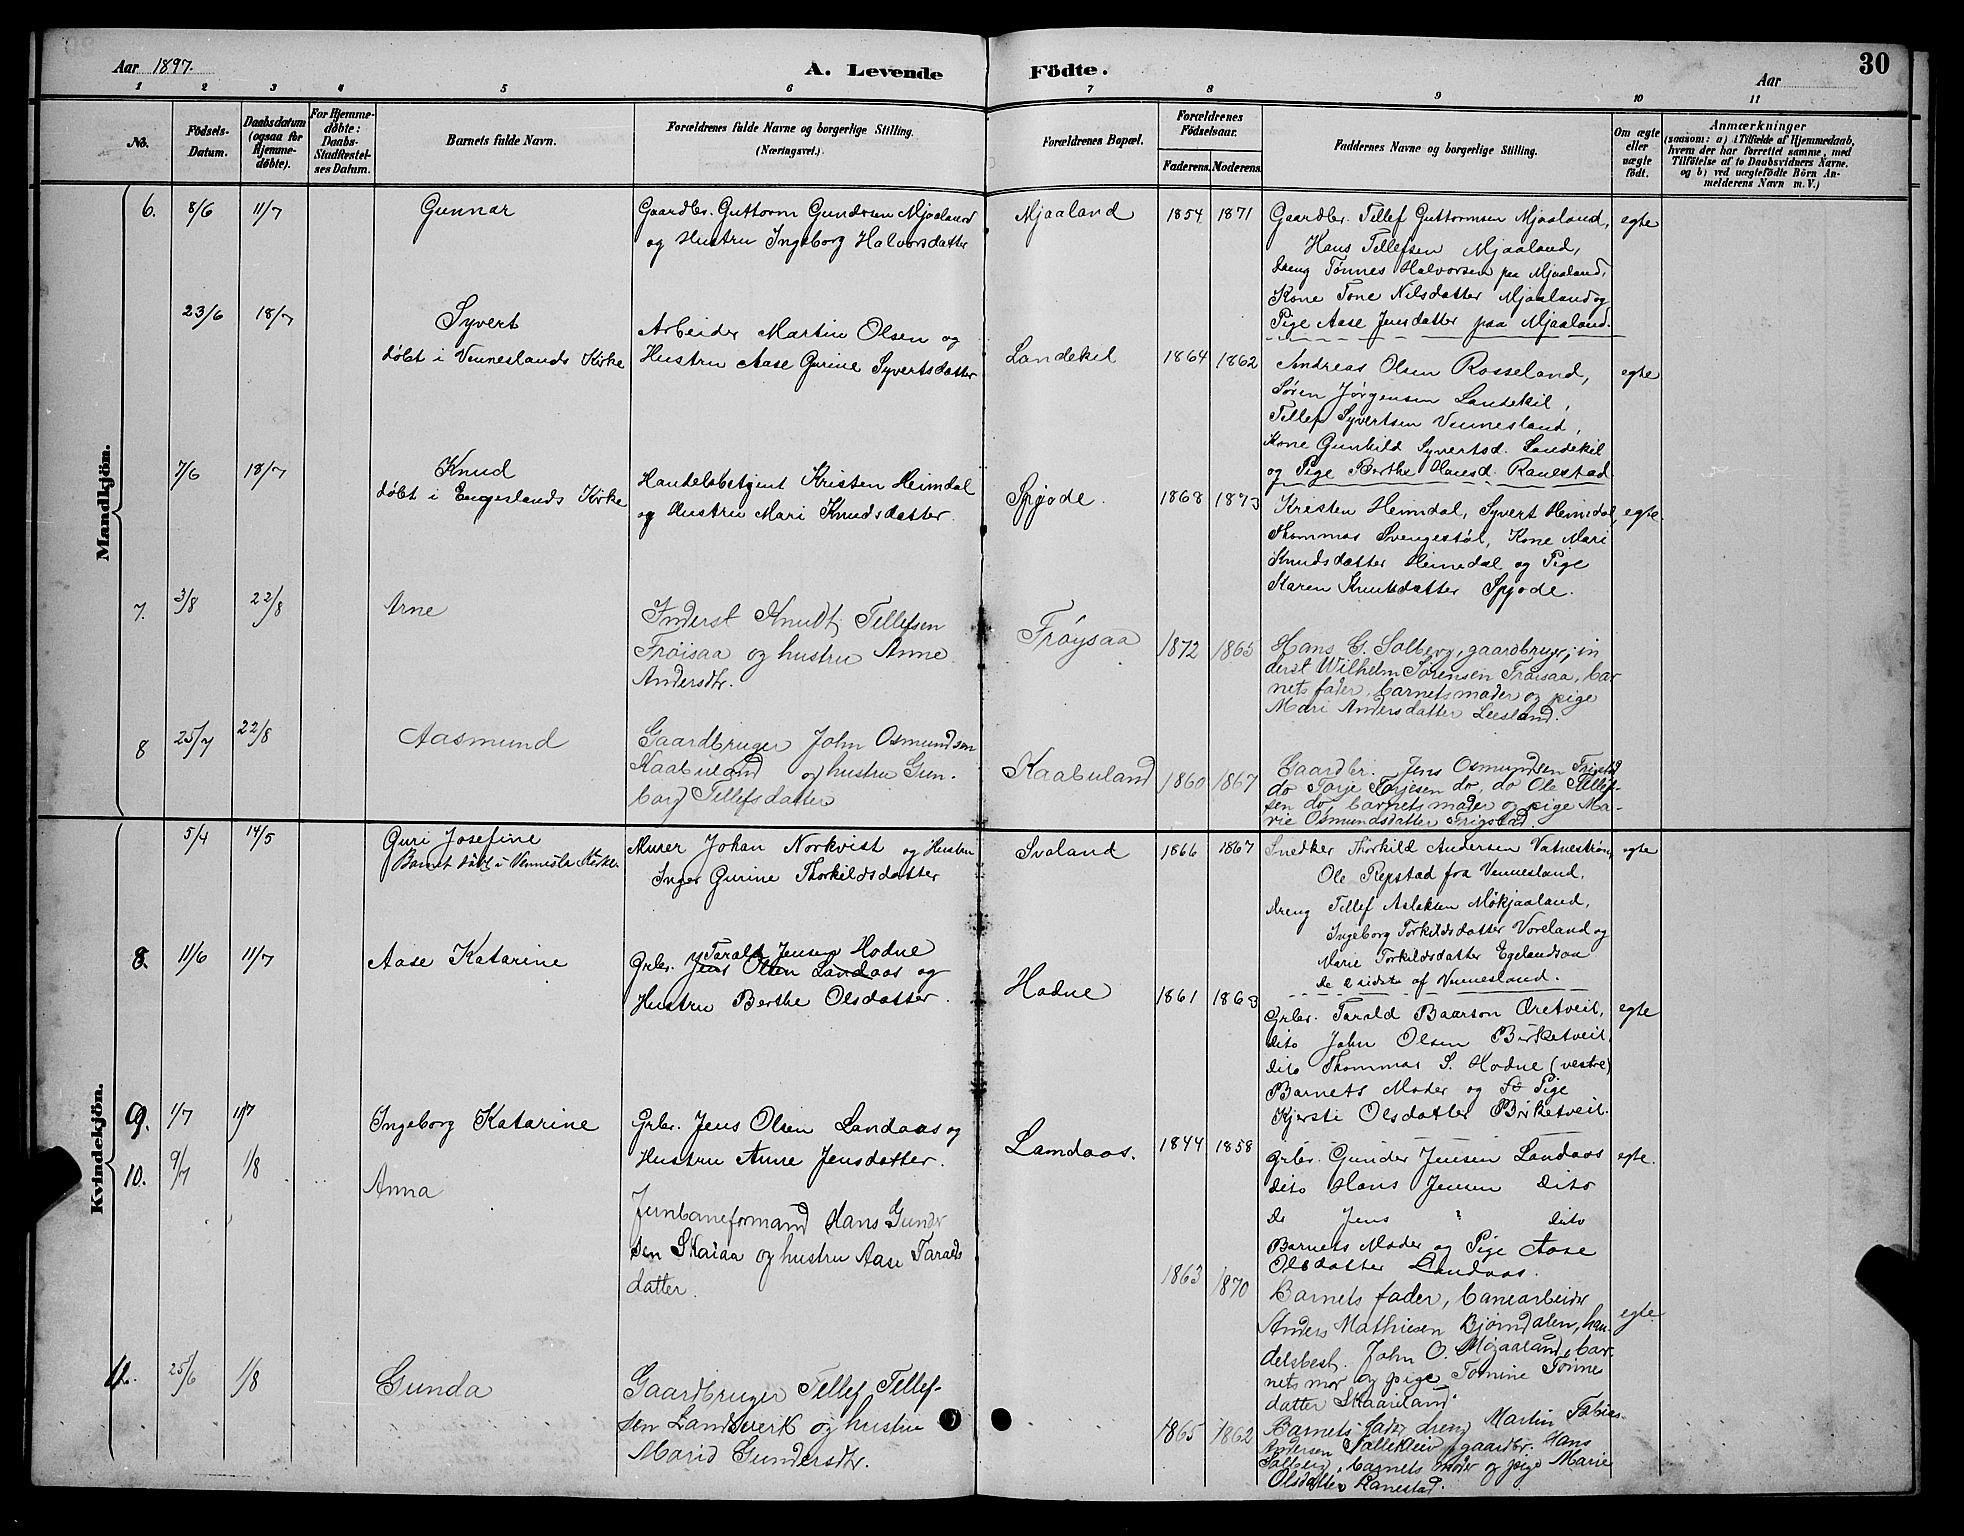 Aar 1897.
A. Levende Födte.
Aar
30
1 2 3 4 5 6 7 8 9 10 11
No.
Födsels-
Datum.
Daabsdatum
(ogsaa for
Hjemme-
döbte).
For Hjemme-
döbte:
Daabs-
Stadfæstel-
ses Datum.
Barnets fulde Navn.
Forældrenes fulde Navne og borgerlige Stilling.
(Næringsvei.)
Forældrenes Bopæl.
Forældrenes
Födselsaar.
Faderens. Moderens.
Faddernes Navne og borgerlige Stilling.
Om ægte
eller
uægte
födt.
Anmærkninger
(saasom: a) i Tilfælde af Hjemmedaab,
hvem der har forrettet samme, med
Tilföielse af to Daabsvidners Navne.
og b) ved uægtefödte Börn An-
melderens Navn m. V.)
Mandkjön.
6. 8/6 11/7
Gunnar
Gaardbr. Guttorm Gundersen Mjaaland
og Hustru Ingeborg Halvorsdatter
Mjaaland
1854 1871
Gaardbr. Tellef Guttormsen Mjaaland,
Hans Tellefsen Mjaaland,
dreng Tønnes Halvorsen paa Mjaaland,
Kone Tone Nilsdatter Mjaaland og
Pige Aase Jensdatter paa Mjaaland.
egte
23/6 18/7
Syvert
døbt i Venneslands Kirke
Arbeider Martin Olsen og
Hustru Aase Gurine Syvertsdatter
Landekil
1864 1862
Andreas Olsen Rosseland,
Søren Jørgensen Landekil,
Tellef Syvertsen Vennesland,
Kone Gunhild Syvertsd. Landekil
og Pige Berthe Hansd. Ranestad
egte
7/6 18/7
Knud
døbt i Engeslands Kirke
Handelsbetjent Kristen Heimdal
og Hustru Mari Knudsdatter.
Spjode.
1868 1873
Kristen Heimdal, Syvert Heimdal,
Thommas Svengestøl, Kone Mari
Knudsdatter Heimedal og Pige
Karen Knutsdatter Spjode.
egte.
7. 3/8 22/8
Arne
Inderst Knudt Tellefsen
Frøisaa og hustru Anne
Andersdtr.
Frøysaa
1872 1865
Hans G. Solberg, gaardbruger, in
derst Wilhelm Sørensen Frøisaa, bar
nets fader, barnets moder og pige
Mari Andersdatter Liesland.
8 25/7 22/8
Aasmund
Gaardbruger John Osmundsen
Kaabuland og hustru Gun-
borg Tellefsdatter
Kaabuland
1860 1867
Gaardbr. Jens Osmundsen Frigstad
do Torje Torjesen do, do Ole Tellef-
sen do, barnets moder og pige Ma-
rie Osmundsdatter Frigstad.
Kvindekjön.
5/4 14/5
Guri Josefine
Barnet døbt i Vennesla Kirke.
Murer Johan Norkvist og Hustru
Inger Gurine Thorkildsdatter
Svaland
1866 1867
Snedker Thorkild Andersen Vatnestrøm
Ole Repstad fra Vennesland,
dreng Tellef Aslaksen Møkjaaland,
Ingeborg Torkildsdatter Voreland og
Marie Torkildsdatter Egelandsaa
de 2 sidste af Vennesland.
egte
8. 11/6 11/7
Aase Katarine
Tarald Jensen Hodne
Grbr. Jens Olsen Landaas og
Hustru Berthe Olsdatter.
Hodne
1861 1863
Grbr. Tarald Baarson Øretveit,
dito John Olsen Birketveit
dito Thommas S. Hodne (vestre)
Barnets Moder og Pige
Kjersti Olsdatter Birketveit.
egte
9. 1/7 11/7
Ingeborg Katarine
Grbr. Jens Olsen Landaas og
Hustru Anne Jensdatter.
Landaas.
1844 1858
Grbr. Gunder Jensen Landaas
dito Hans Jensen dito
do Jens " dito
Barnets Moder og Pige Aase
Olsdatter Landaas.
egte.
10. 9/7 1/8
Anna
Jernbaneformand Hans Gunder
sen Skaiaa og hustru Aase Taralds
datter.
1863 1870
Barnets fader, banearbeider
Anders Mathiesen Bjørndalen, han
delsbest. John O. Mojaaland, bar-
nets mor og pige Tomine Tønne
datter Skaareland.
egte
11. 25/6 1/8
Gunda
Gaardbruger Tellef Tellef-
sen Landsverk og hustru
Marid Gundersdtr.
1865 1862
Barnets fader dreng Martin Tobias
Andersen gaardbr. Hans
Solberg, barnets moder og pige Marie
Olsdatter Ranestad.